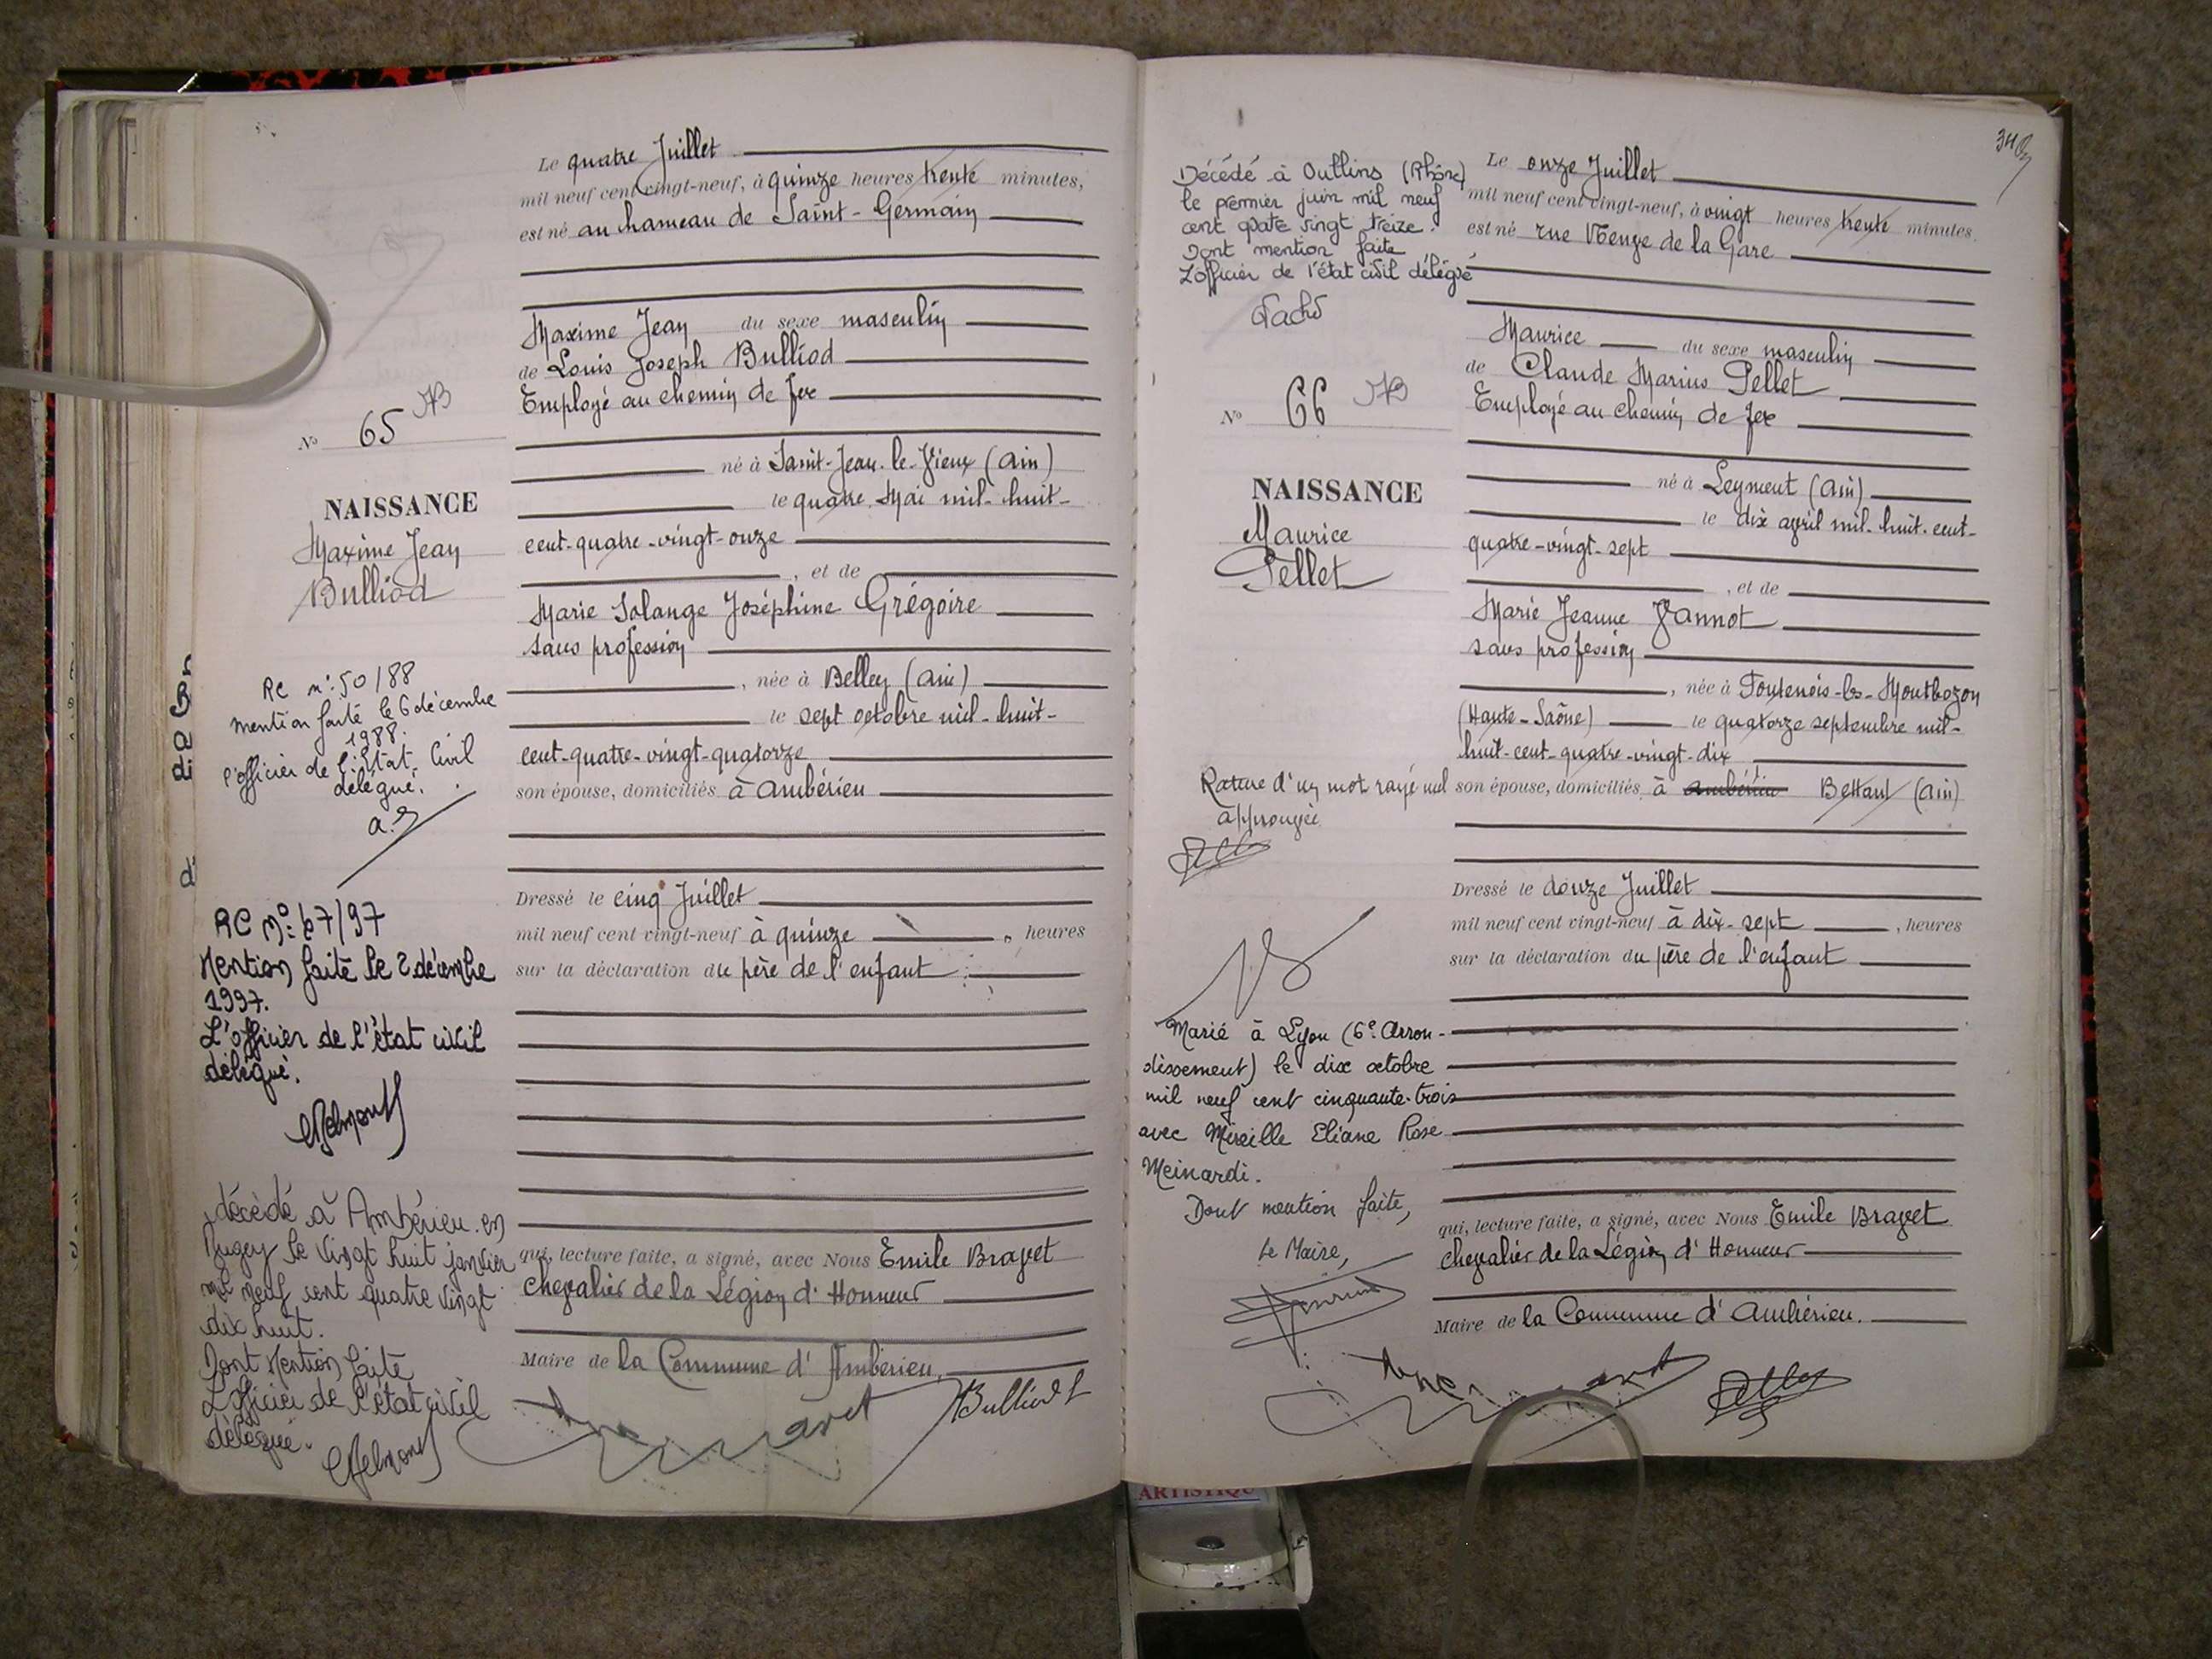 Le quatre Juillet
mil neuf cent vingt-neuf, à quinze heures trente minutes,
est né au hameau de Saint-Germain
Maxime Jean du sexe masculin
de Louis Joseph Bulliod
Employé au chemin de fer
né à Saint-Jean-le-Vieux (Ain)
le quatre Mai mil-huit-
cent-quatre-vingt-onze
, et de
Marie Solange Joséphine Grégoire
sans profession
, née à Belley (Ain)
le sept octobre mil-huit-
cent-quatre-vingt-quatorze
son épouse, domiciliés à Ambérieu
Dressé le cinq Juillet
mil neuf cent vingt-neuf à quinze , heures
sur la déclaration du père de l'enfant
qui, lecture faite, a signé, avec Nous Emile Bravet
Chevalier de la Légion d'Honneur
Maire de la Commune d'Ambérieu.
Bulliod L
No 65
NAISSANCE
Maxime Jean
Bulliod
RC n°:50/88
mention faite le 6 décembre
1988.
l'officier de l'Etat Civil
délégué.
RC N°: 67/97
Mention faite le 2 décembre
1997.
L'officier de l'état civil
délégué.
décédé à Ambérieu-en
Bugey le vingt huit janvier
mil neuf cent quatre vingt
dix huit.
Dont Mention faite
L'officier de l'état civil
délégué.
Décédé à Oullins (Rhône)
le premier juin mil neuf
cent quatre vingt treize.
Dont mention faite
L'officier de l'état civil délégué
No 66
NAISSANCE
Maurice
Pellet
Rature d'un mot rayé nul
approuvée
Marié à Lyon (6e Arron-
dissement) le dix octobre
mil neuf cent cinquante-trois
avec Mireille Eliane Rose
Meinardi.
Dont mention faite,
Le Maire,
Le onze Juillet
mil neuf cent vingt-neuf, à vingt heures trente minutes.
est né rue Neuve de la Gare
Maurice du sexe masculin
de Claude Marius Pellet
Employé au chemin de fer
né à Leyment (Ain)
le dix avril mil-huit-cent-
quatre-vingt-sept
, et de
Marie Jeanne Vannot
sans profession
, née à Fontenois-les-Montbozon
(Haute-Saône) le quatorze septembre mil-
huit-cent-quatre-vingt-dix
son épouse, domiciliés à Ambérieu Bettant (Ain)
Dressé le douze Juillet
mil neuf cent vingt-neuf à dix-sept , heures
sur la déclaration du père de l'enfant
qui, lecture faite, a signé, avec Nous Emile Bravet
Chevalier de la Légion d'Honneur
Maire de la Commune d'Ambérieu.
ARTISTIQU